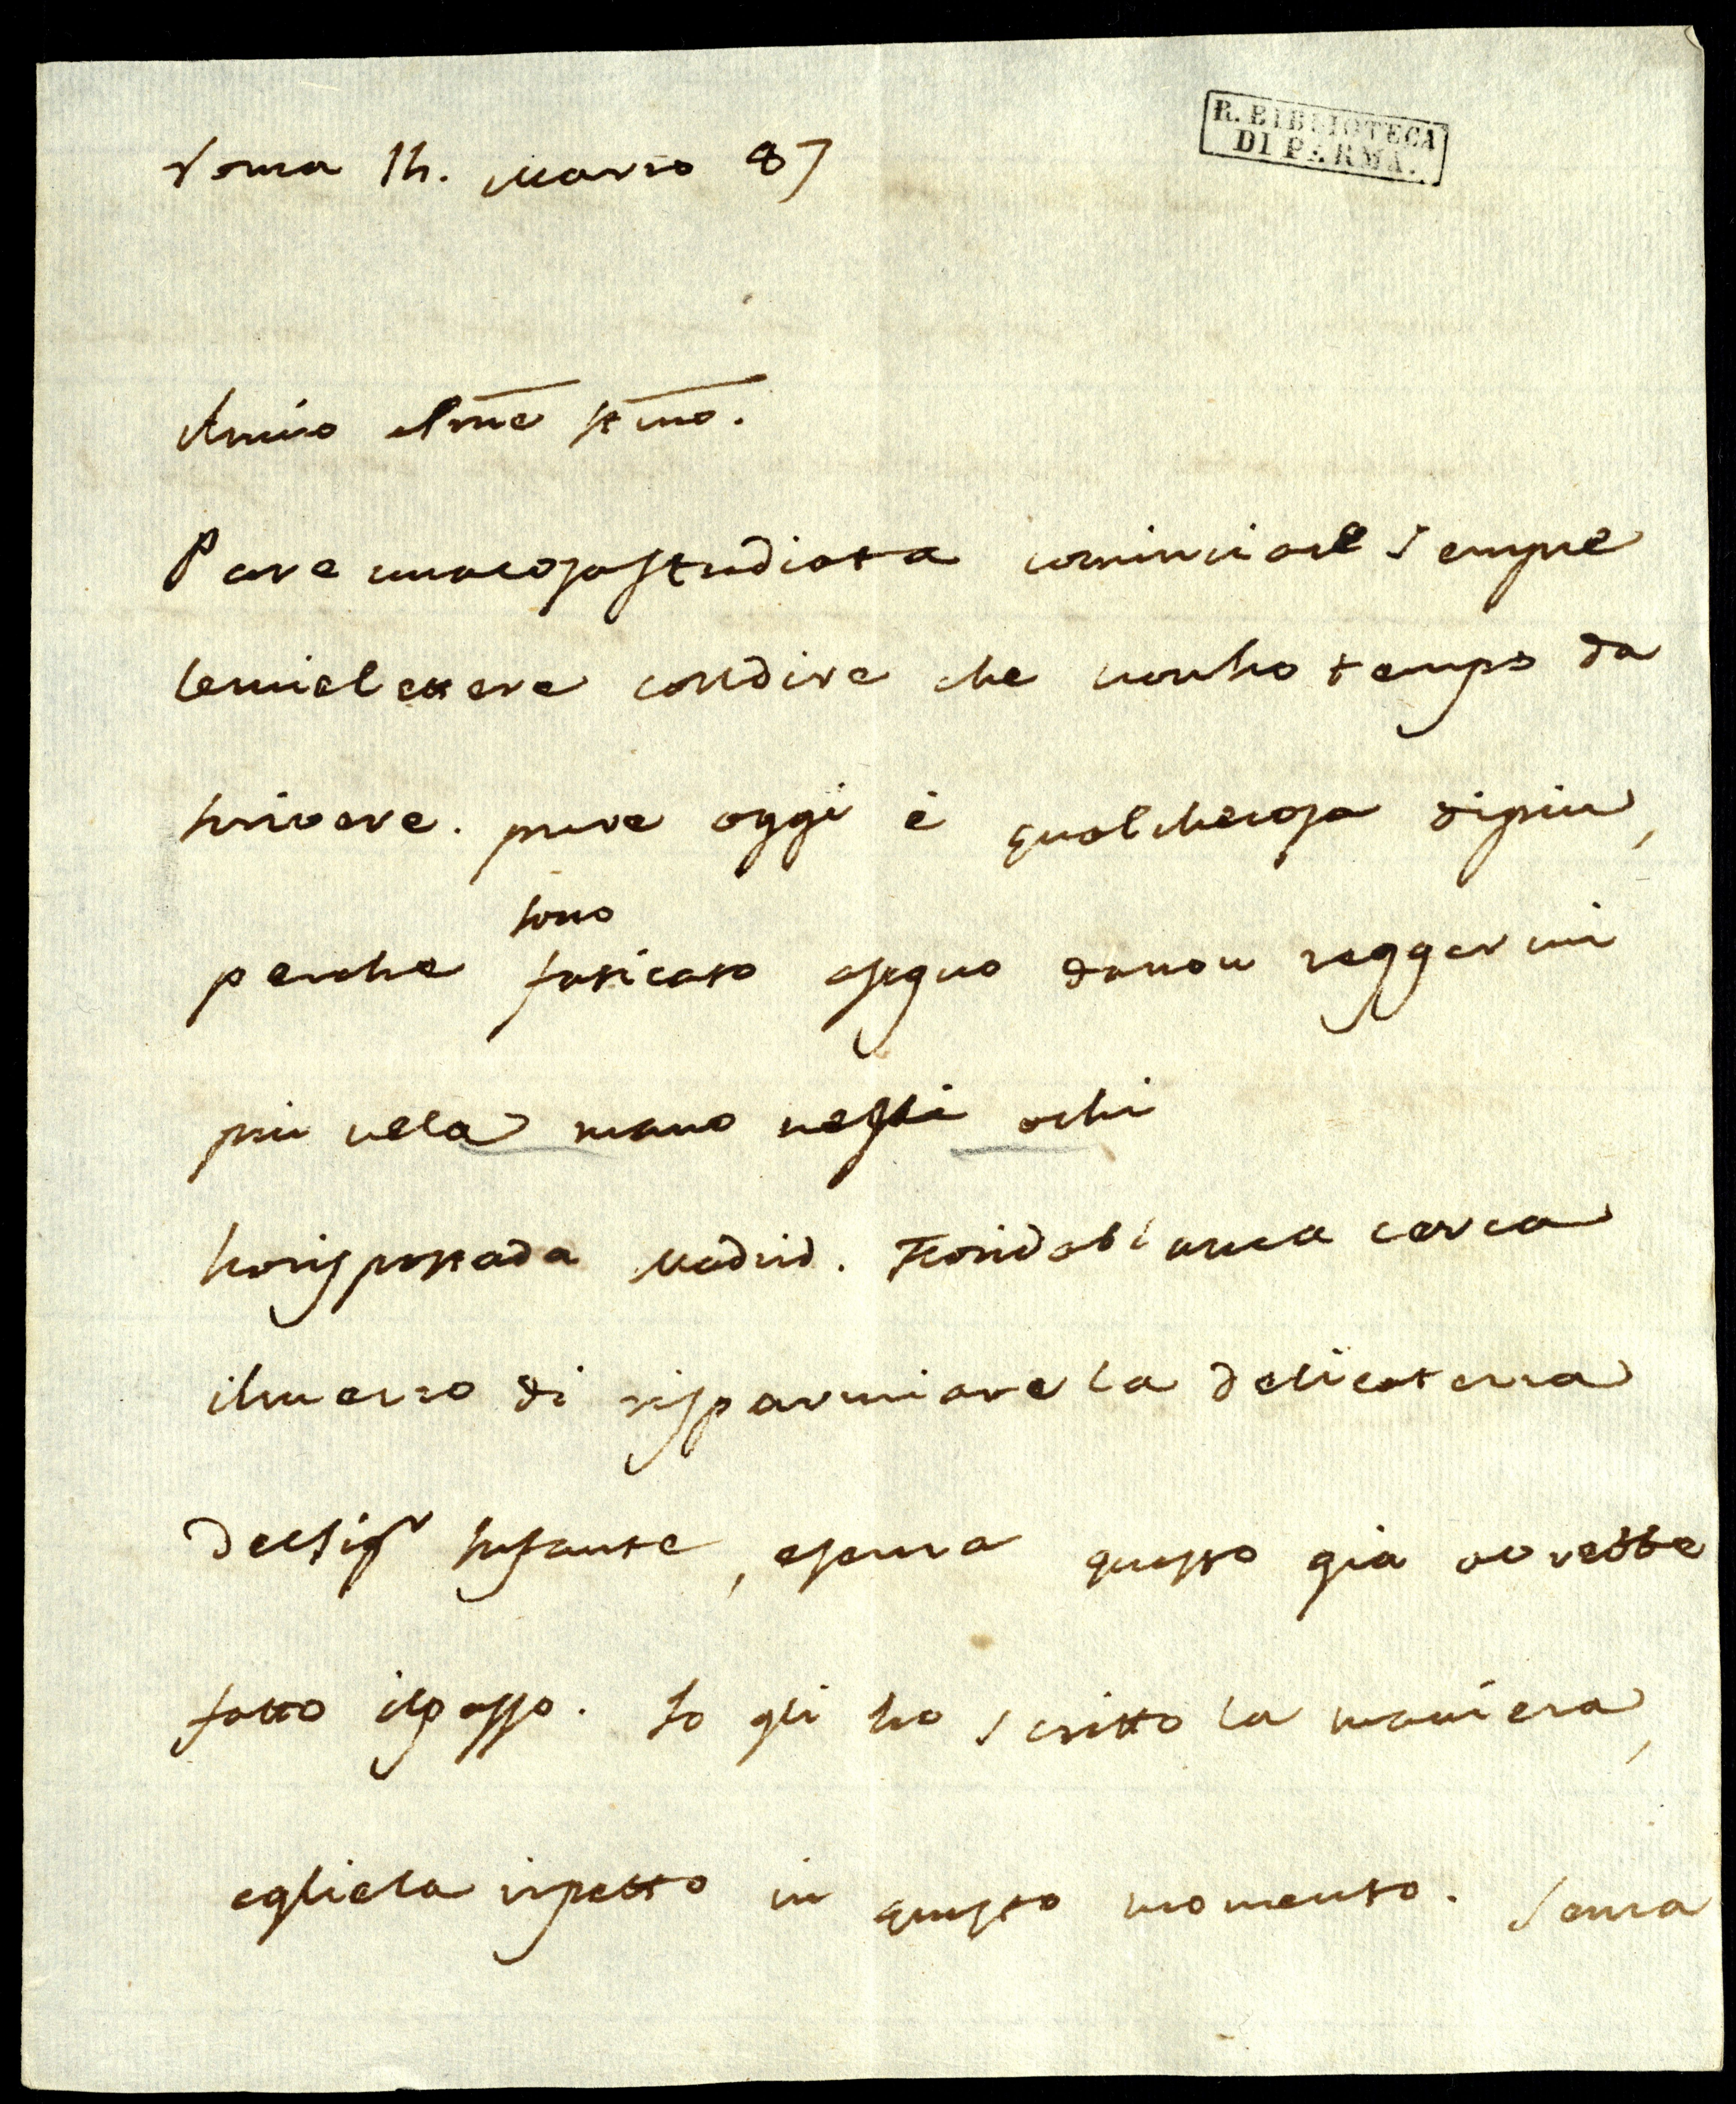 R. BIBLIOTECA
DI PARMA.
Roma 14. Marzo 87
Amico e Prne stmo.
Pare una cosa studiata cominciare sempre
le mie lettere con dire che non ho tempo da
scrivere. pure oggi è qualche cosa di piu,
perche sono faticato a segno da non reggermi
piu ne la mano ne gli ochi
ho risposta da Madrid. Floridablanca cerca
il mezzo di risparmiare la delicatezza
del Sigr Infante, e senza questo già avrebbe
fatto il passo. Io gli ho scritto la maniera,
e gliela ripetto in questo momento. Senza